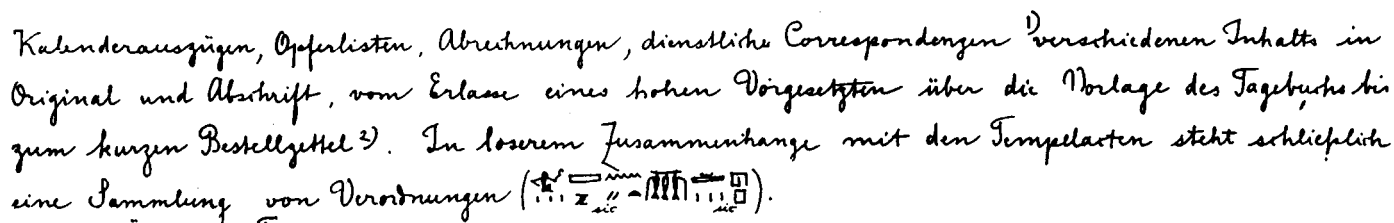 Kalenderauszügen, Opferlisten, Abrechnungen, dienstliche Correspondenzen ¹⁾ verschiedenen Inhalts in
Original und Abschrift, vom Erlasse eines hohen Vorgesetzten über die Vorlage des Tagebuchs bis
zum kurzen Bestellzettel ²⁾. In loserem Zusammenhange mit den Tempelacten steht schließlich
eine Sammlung von Verordnungen (sic sic).